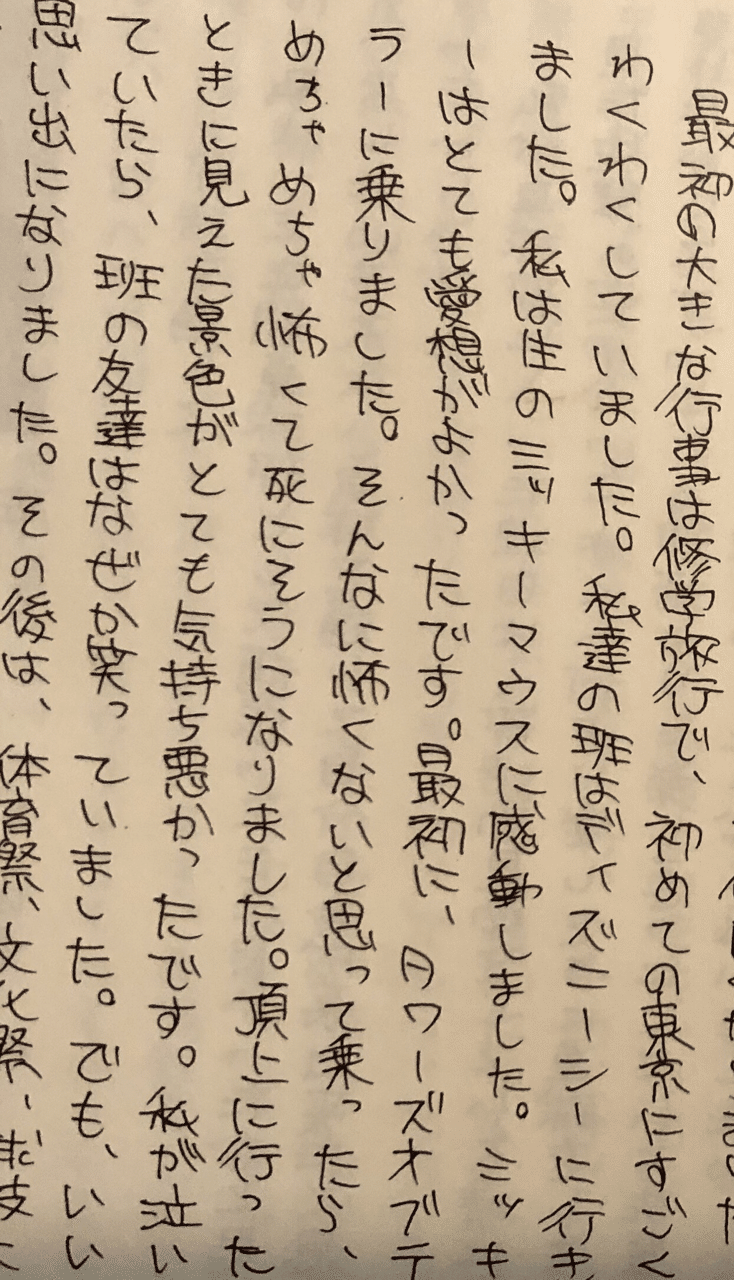 最初の大きな行事は修学旅行で、初めての東京にすごく
わくわくしていました。私達の班はディズニーシーに行き
ました。私は生のミッキーマウスに感動しました。ミッキ
ーはとても愛想がよかったです。最初に、タワーズオブテ
ラーに乗りました。そんなに怖くないと思って乗ったら、
めちゃめちゃ怖くて死にそうになりました。頂上に行った
ときに見えた景色がとても気持ち悪かったです。私が泣い
ていたら、班の友達はなぜか笑っていました。でも、いい
思い出になりました。その後は、体育祭、文化祭、球技